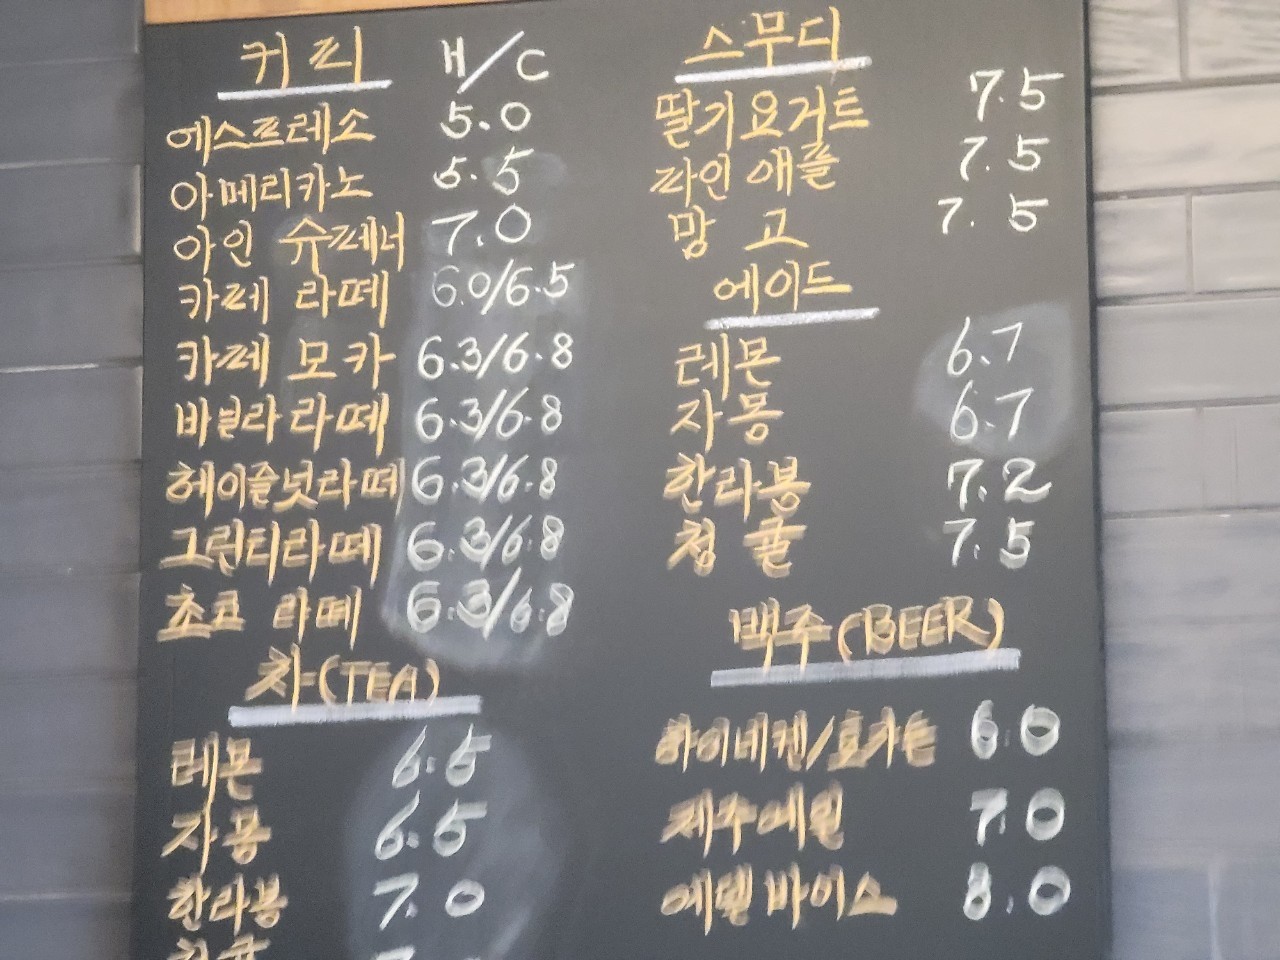 커피 H/C
에스프레소 5.0
아메리카노 5.5
아인 슈페너 7.0
카페 라떼 6.0/6.5
카페 모카 6.3/6.8
바닐라 라떼 6.3/6.8
헤이즐넛라떼 6.3/6.8
그린티라떼 6.3/6.8
초코 라떼 6.3/6.8
차(TEA)
레몬 6.5
자몽 6.5
한라봉 7.0
스무디
딸기요거트 7.5
파인애플 7.5
망고 7.5
에이드
레몬 6.7
자몽 6.7
한라봉 7.2
청귤 7.5
맥주(BEER)
하이네켄/호가든 6.0
제주에일 7.0
에델바이스 8.0